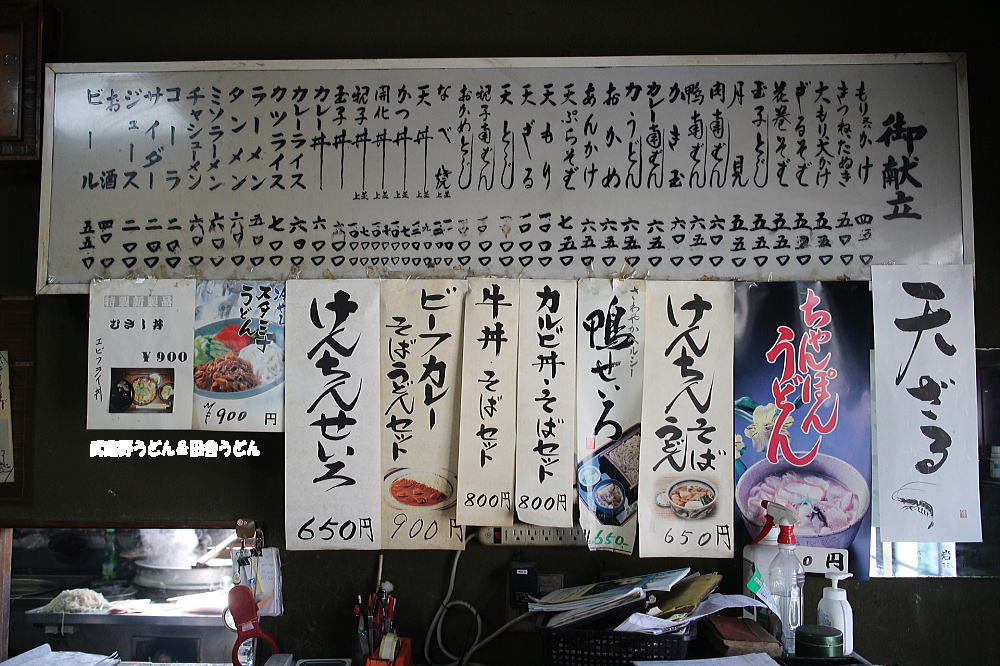 御献立
もりそばかけ 四五〇
きつねたぬき 五〇〇
大もり大かけ 五五〇
ざるそば 五五〇
花巻そば 五五〇
玉子とじ 五五〇
月見 五五〇
肉南ばん 六五〇
鴨南ばん 六五〇
かき玉 六〇〇
カレー南ばん 六五〇
カレーうどん 六五〇
おかめ 六五〇
あんかけ 六五〇
天ぷらそば 七五〇
天もり
天ざる
天とじ
親子南ばん
おかめとじ
なべ焼
天丼 上 並
かつ丼 上 並
開化丼 上 並
親子丼 上 並
玉子丼 上 並
カレー丼 六〇〇
カレーライス 六〇〇
カツライス 七〇〇
ラーメン 五〇〇
タンメン 六〇〇
ミソラーメン 六〇〇
チャシューメン 六〇〇
コーラ 二〇〇
サイダー 二〇〇
ジュース 二〇〇
お酒 四〇〇
ビール 五五〇
むさし丼
¥900
エビフライ丼
スタミナうどん
900円
けんちんせいろ
650円
ビーフカレー
そばうどんセット
900円
牛丼・そばセット
800円
カルビ丼・そばセット
800円
さわやかヘルシー
鴨せいろ
650
けんちんそば
うどん
650円
ちゃんぽん
うどん
0円
天ざる
武蔵野うどん&田舎うどん